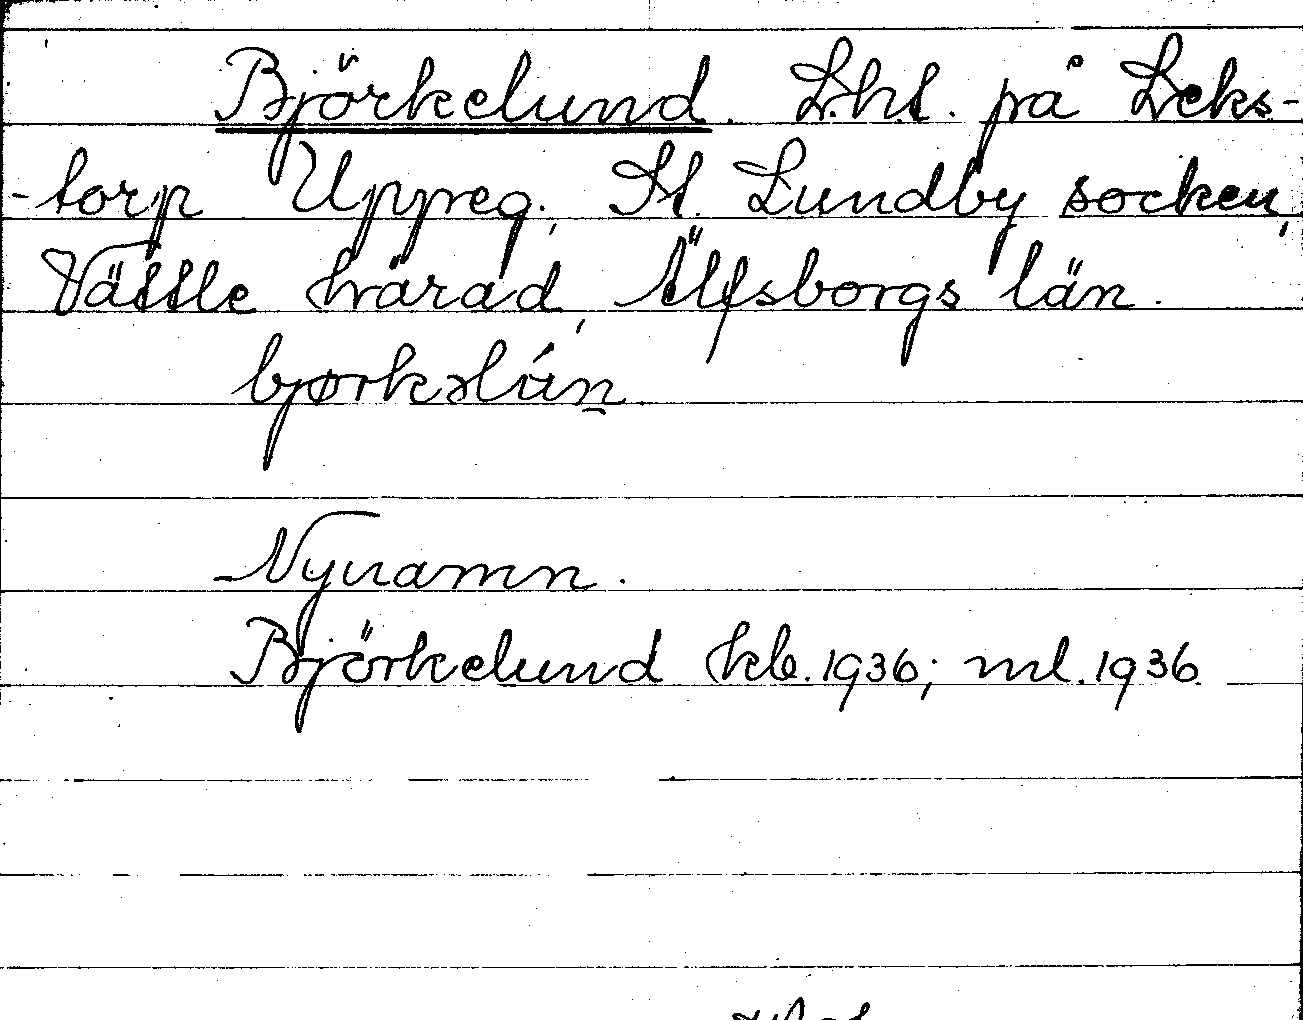 Björkelund. L.h.t. på Leks-
-torp Uppreg., St. Lundby socken,
Vättle härad, Älfsborgs län.
bjørkəlún̠.
Nynamn.
Björkelund kb. 1936; ml. 1936